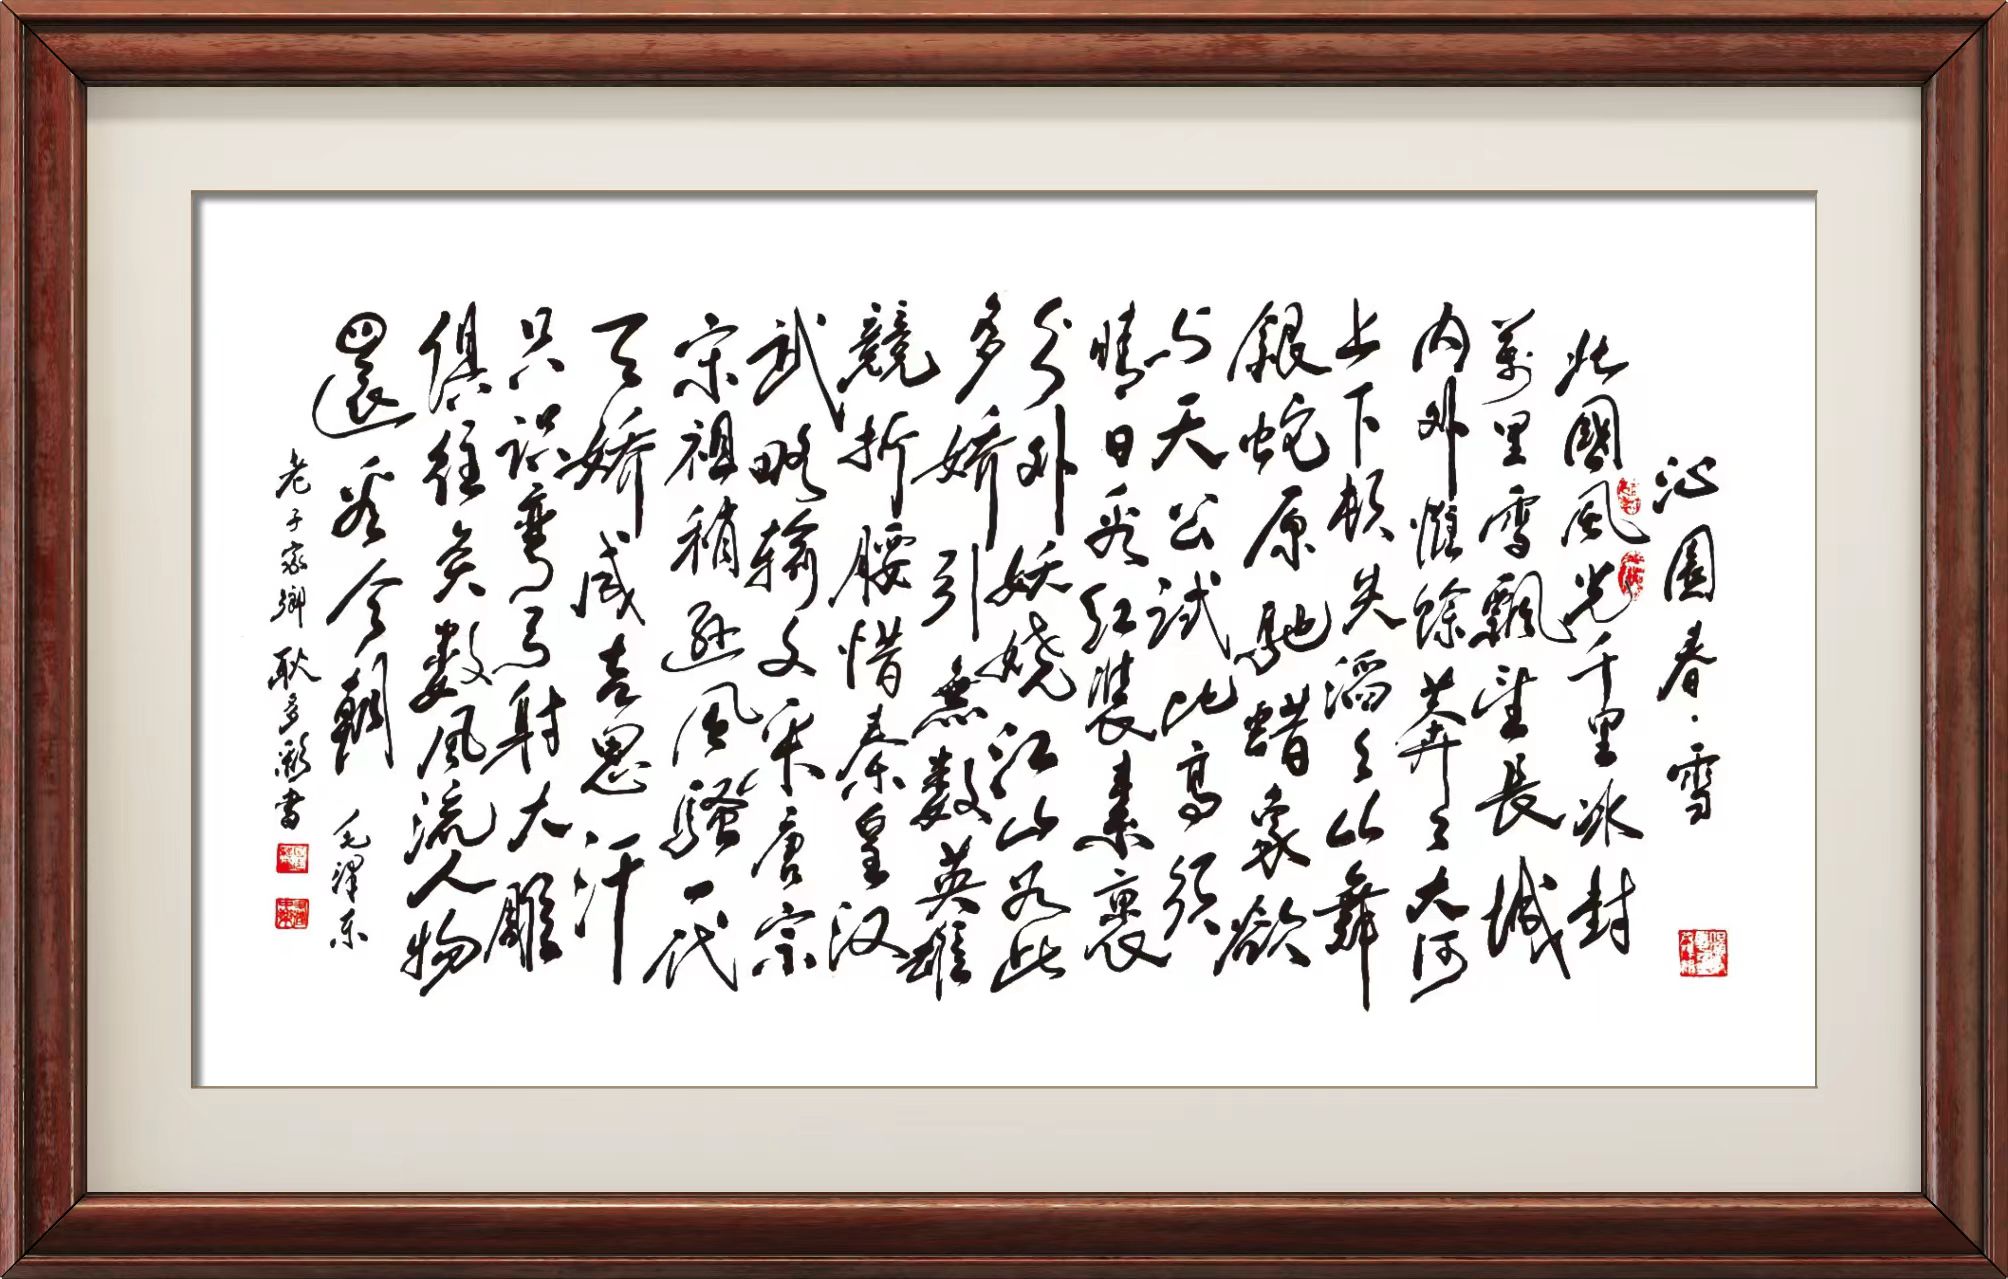 沁園春·雪
北國風光千里冰封
萬里雪飄望長城
内外惟餘莽々大河
上下顿失滔々山舞
銀蛇原馳蜡象欲
与天公试比高须
晴日看红装素裹
分外妖娆江山如此
多娇引無数英雄
競折腰惜秦皇汉
武略输文采唐宗
宋祖稍逊风骚一代
天娇成吉思汗
只识弯弓射大雕
俱往矣数風流人物
還看今朝 毛澤东
老子家鄉 耿多书